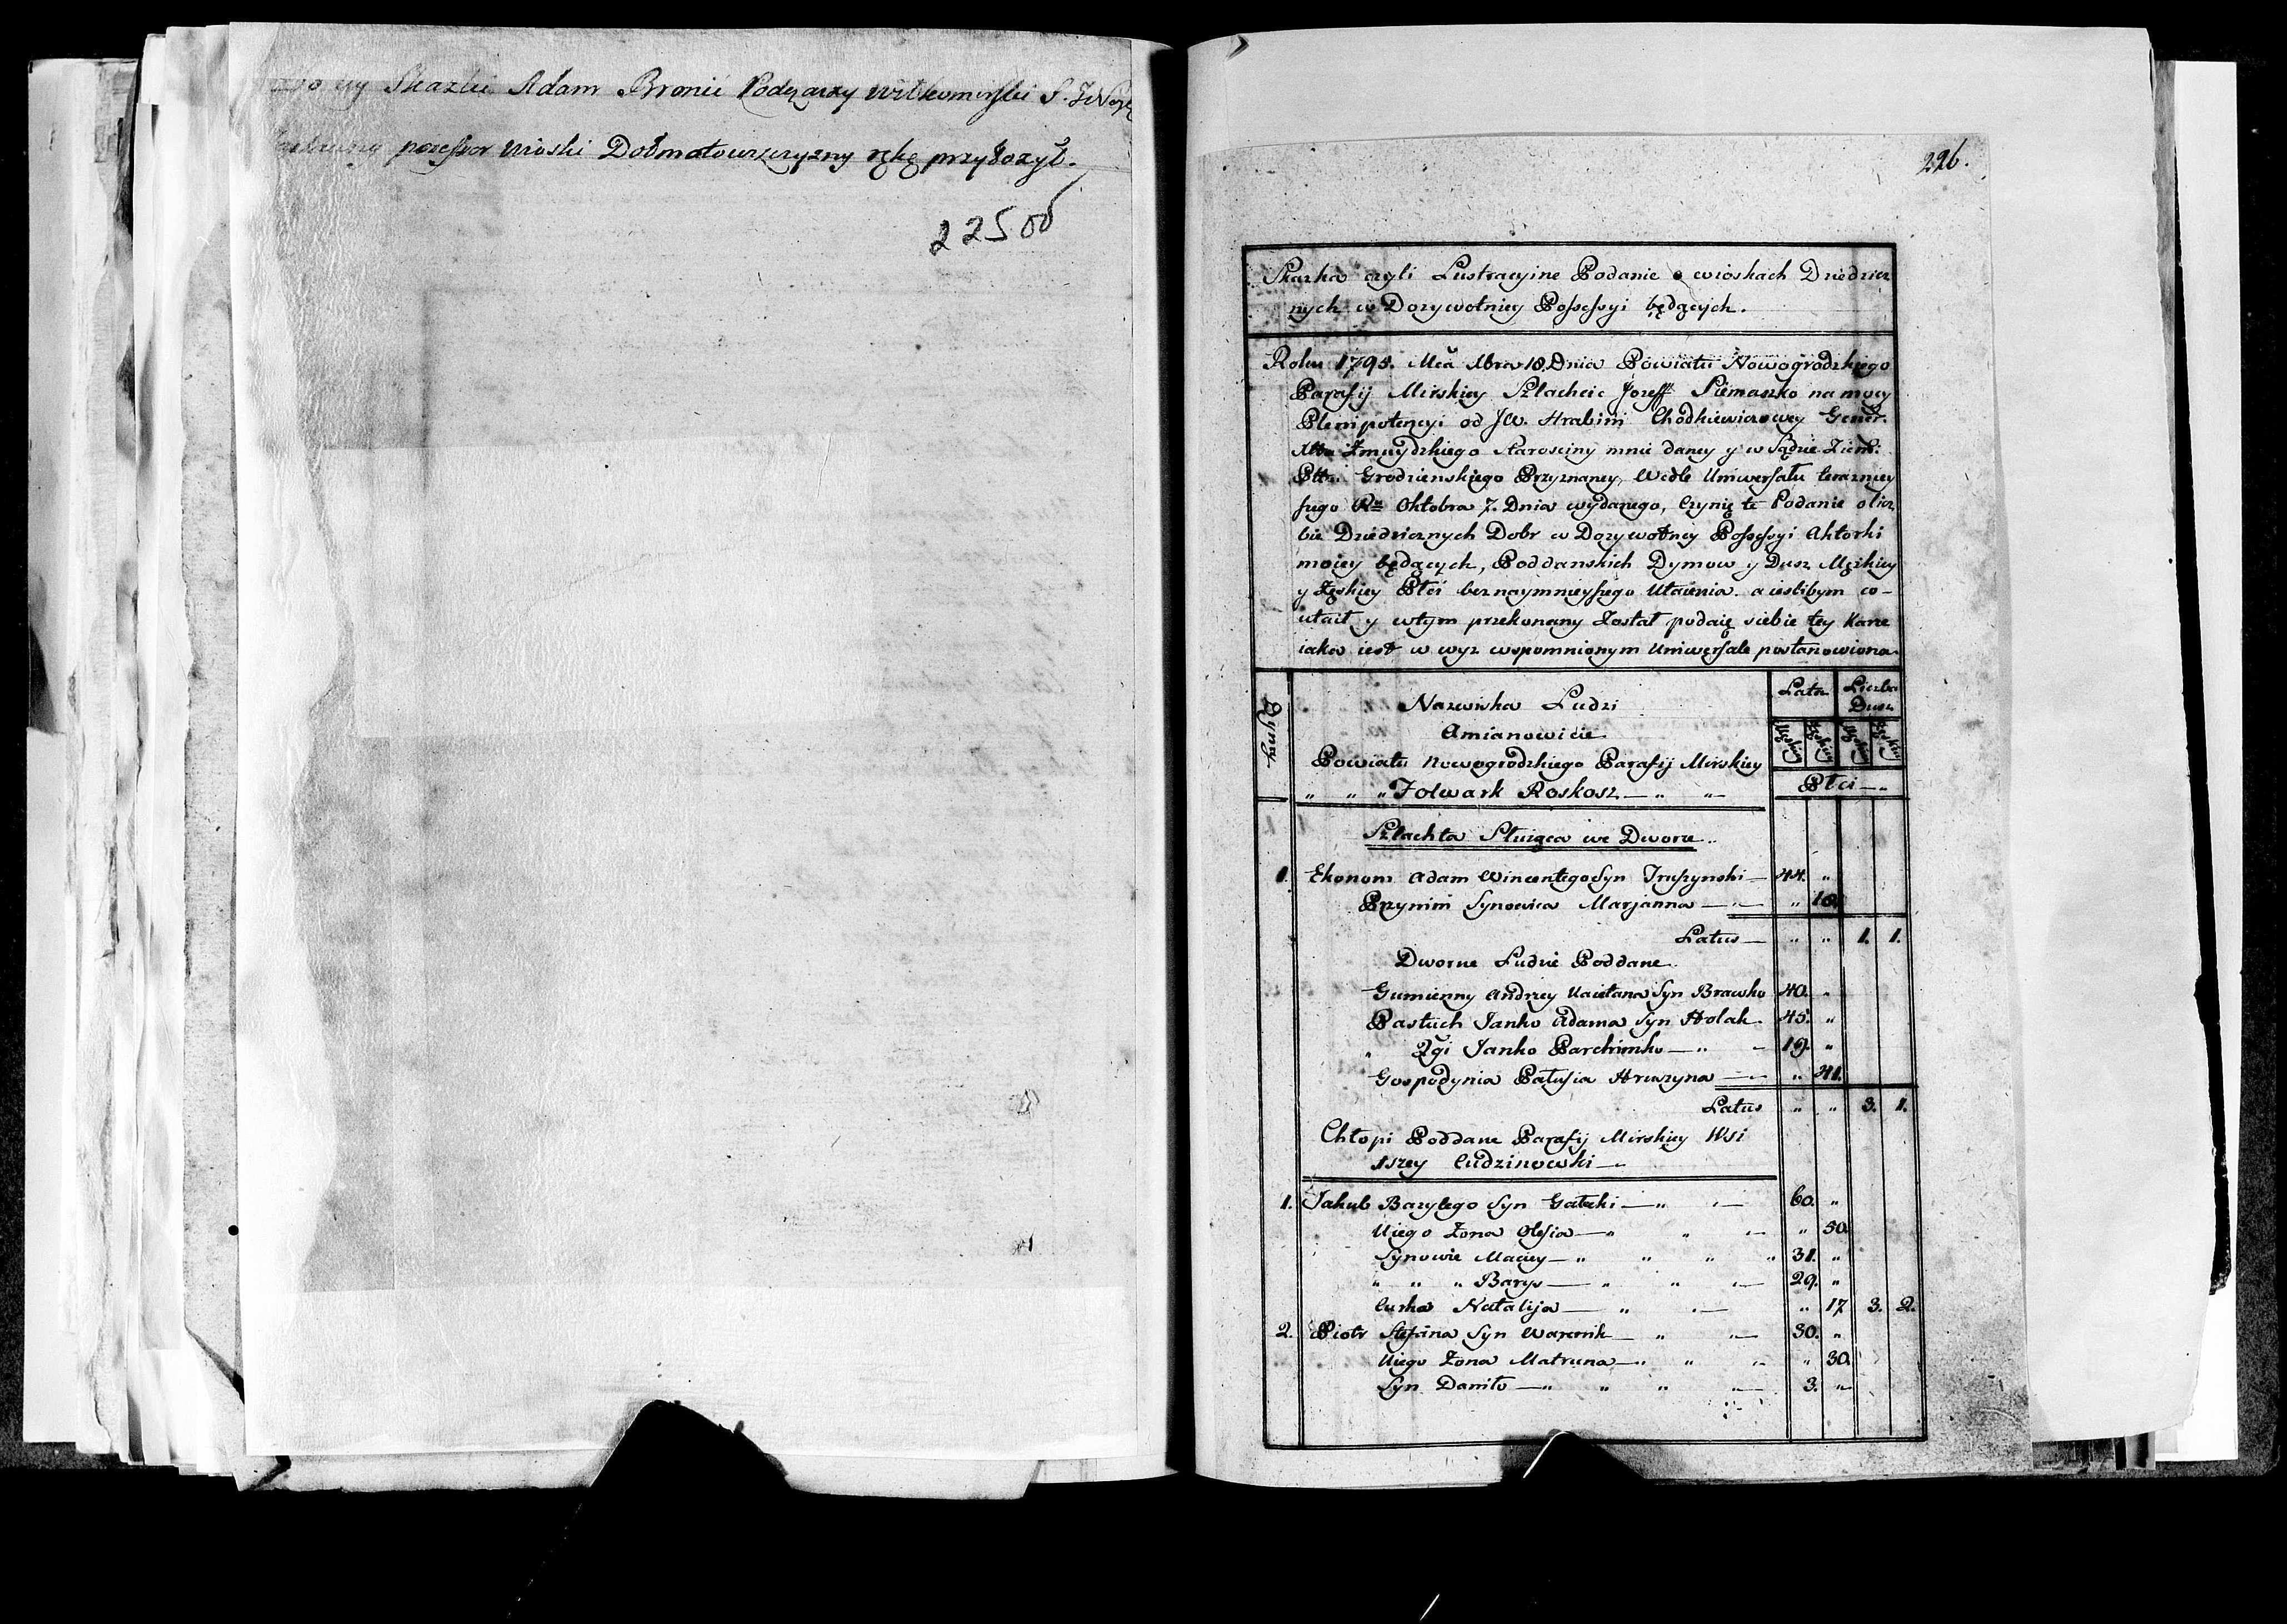 Skazki Adam Bronic Podczaszy Wiłkomirski S.
possessor wioski Dołmatowszczyzny rękę przyłożył.
225 об
226.
Skazka czyli Lustracyine Podanie o wioskach Dziedzicz
nych w Dozywotniey Possessyi będących.
Roku 1795. Mca Xbra 18. Dnia Powiatu Nowogrodzkiego
Parafij Mirskiey Szlachcic Jozeff Siemaszko na mocy
Plenipotencyi od JW. Hrabini Chodkiewiczowey Gener.
Xtwa Zmuydzkiego Starosciny mnie daney y w Sądzie Ziem:
Pttu Grodzienskiego Przyznaney, Wedle Uniwersału terazniey
szego Ru Oktobra 7. Dnia wydanego, Czynię te Podanie o licz
bie Dziedzicznych Dobr w Dozywotney Possessyi Aktorki
moiey będących, Poddanskich Dymow y Dusz Męzkiey
y Zęskiey Płci bez naymnieyszego Utaienia. a ieslibym co-
utaił y wtym przekonany Został podaię siebie tey Karze
iaka iest w wyz wspomnionym Uniwersale postanowiona.
Dymy
Nazwiska Ludzi
Lata
Liczba Dusz
Amianowicie
Męskiey Zęskiey Męskiey Zęskiey
Powiatu Nowogrodzkiego Parafij Mirskiey
" " " Folwark Roskosz — " "—
Płci — "
Szlachta Służąca we Dworze..
1. Ekonom Adam Wincentego Syn — 44. "
Przynim Synowica Marjanna — " — " 18.
Latus — " " 1. 1.
Dworne Ludzie Poddane.
Gumienny Andrzey Kaietana Syn Brawko 40. "
Pastuch Janko Adama Syn Holak 45. "
" 2gi Janko Parchimko — " — 19. "
Gospodynia Patusia Hruszyna — " 41.
Latus " " 3. 1.
Chłopi Poddane Parafij Mirskiey Wsi
1szey Cudzinowski —
1. Jakub Bazylego Syn Gałecki — " "— 60. "
Uiego Zona Olesia — " " "— " 50.
Synowie Maciey — " " " " 31. "
" " " Barys — " " "— 29. "
Curka Natalija — " "— " 17 3. 2.
2. Piotr Stefana Syn Warenik — " "— 30. "
Uiego Zona Matruna — " " "— " 30.
Syn Daniło — " " " "— 3. "